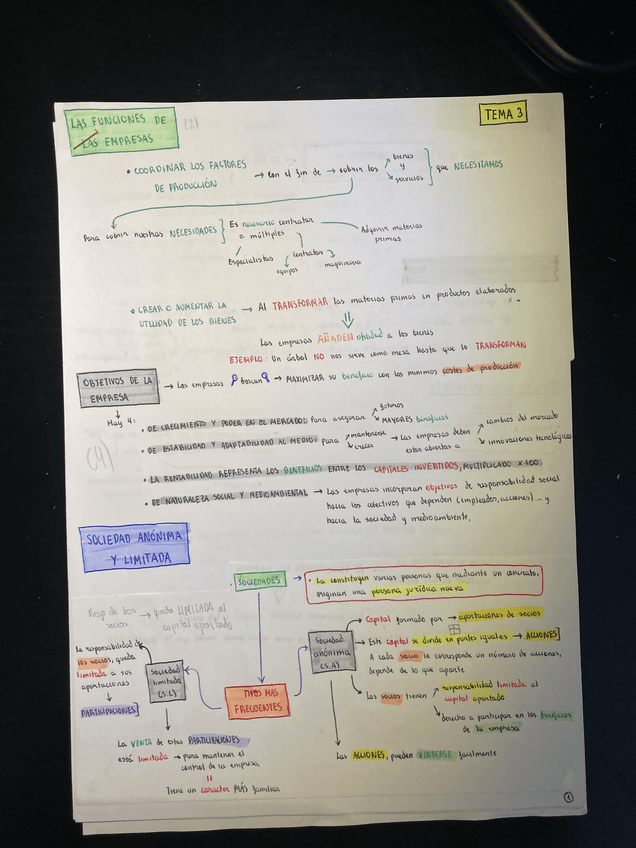 LAS FUNCIONES DE
LAS EMPRESAS
(2)
TEMA 3
• COORDINAR LOS FACTORES
DE PRODUCCIÓN
→ Con el fin de → cubrir los
bienes
y
servicios
que NECESITAMOS
Para cubrir nuestras NECESIDADES
Es necesario contratar
a múltiples
Especialistas
equipos
contratar
maquinaria
Adquirir materias
primas
• CREAR O AUMENTAR LA
UTILIDAD DE LOS BIENES
→ Al TRANSFORMAR las materias primas en productos elaborados
Las empresas AÑADEN utilidad a los bienes
EJEMPLO: Un árbol NO nos sirve como mesa hasta que lo TRANSFORMAN
OBJETIVOS DE LA
EMPRESA
→ Las empresas buscan → MAXIMIZAR su beneficio con los mínimos costes de producción
Hay 4:
(4)
• DE CRECIMIENTO Y PODER EN EL MERCADO: Para asegurar
futuros
MAYORES beneficios
• DE ESTABILIDAD Y ADAPTABILIDAD AL MEDIO: Para
mantenerse
crecer
→ Las empresas deben
estar abiertas a
cambios del mercado
innovaciones tecnológicas
• LA RENTABILIDAD REPRESENTA LOS BENEFICIOS ENTRE LOS CAPITALES INVERTIDOS, MULTIPLICADO X 100
• DE NATURALEZA SOCIAL Y MEDIOAMBIENTAL → Las empresas incorporan objetivos de responsabilidad social
hacia los colectivos que dependen (empleados, acciones)... y
hacia la sociedad y medioambiente.
SOCIEDAD ANÓNIMA
Y LIMITADA
SOCIEDADES
• La constituyen varias personas que mediante un contrato,
originan una persona jurídica nueva
Resp de los
socios
→ queda LIMITADA al
capital aportado
La responsabilidad de
los socios, queda
limitada a sus
aportaciones
PARTICIPACIONES]
Sociedad
limitada
(S.L)
TIPOS MÁS
FRECUENTES
Sociedad
anónima
(S.A)
Capital formado por → aportaciones de socios
→ Este capital se divide en partes iguales → ACCIONES]
A cada socio le corresponde un número de acciones,
depende de lo que aporte
Los socios tienen
responsabilidad limitada al
capital aportado
derecho a participar en los beneficios
de la empresa
La VENTA de estas PARTICIPACIONES
está limitada → para mantener el
control de la empresa
Tiene un carácter MÁS familiar
Las ACCIONES, pueden VENDERSE fácilmente
1